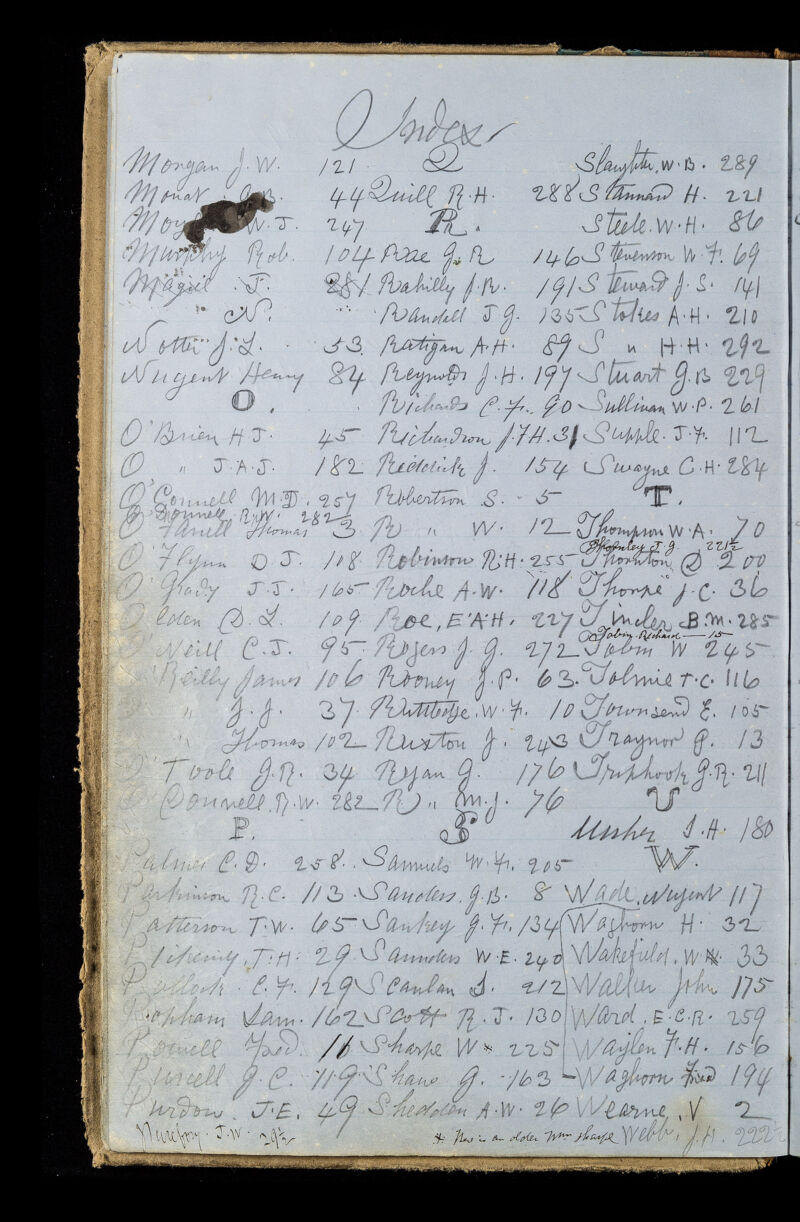 Index
Morgan J. W. 121
44
W. J. 247
Murphy Rob. 104
Magill J. 281
N.
Notter J. L. 53
Nugent Henry 84
O.
O'Brien H J. 45
O " J. A. J. 182
O'Connell M. D. 257
O'Donnell R. W. 282
O'Farrell Thomas 3
O'Flynn D J. 108
O'Grady J. J. 165
Olden D. L. 109
O'Neill C. J. 95
O'Reilly James 106
O " J. J. 37
" Thomas 102
O'Toole G. R. 34
O'Connell R. W. 282
P.
Palmer C. D. 258
Parkinson R. C. 113
Patterson T. W. 65
Pikeing, J. H. 29
Pollock C. F. 129
Popham Sam. 162
Powell Fred. 16
Purcell G. C. 119
Purdon J. E. 49
J. W. 29½
Q
Quill R. H. 288
R.
Rae G. R 146
Rahilly J. R. 191
Randell J G. 135
Ratigan A. H. 89
Reynolds J. H. 197
Richards C. F. 90
Richardson J. F H. 31
Riddick J. 154
Robertson S. 5
R " W. 12
Robinson R. H. 255
Roche A. W. 118
Roe, E. A. H. 227
Rogers J. G. 272
Rooney J. P. 63.
Ruttledge W. F. 10
Ruxton J. 243
Ryan G. 176
R " M. J. 76
S
Samuels W. F. 205
Sanders. G. B. 8
Sankey G. F. 134
Saunders W E. 240
Scanlan J. 212
Scott R. J. 130
Sharpe W * 225
Shaw G. 163
Shedden A. W. 26
* Now is an older Wm Sharpe
Slaughter, W. B. 289
Stannard H. 221
Steele. W. H. 86
Stevenson W. F. 69
Steward J. S. 141
Stokes A. H. 210
S " H. H. 292
Stuart G. B 229
Sullivan W. P. 261
Supple. J. F. 112
Swayne C. H. 284
T.
Thompson W. A. 70
Thornley J. G. 221½
Thornton D 200
Thorpe J. C. 36
Tincler B. M. 285
Tobin Richard — 15
Tobin W 245
Tolmie T. C. 116
Townsend E. 105
Traynor P. 13
Triphook G. R. 211
U
Ussher I. H. 180
W.
Wade, Nugent 117
Waghorn H. 32
Wakefield. W 33
Walker John 175
Ward, E. C. R. 259
Waylen F. H. 156
Waghorn Fred 194
Wearne, V 2
Webb, J. H. 222½